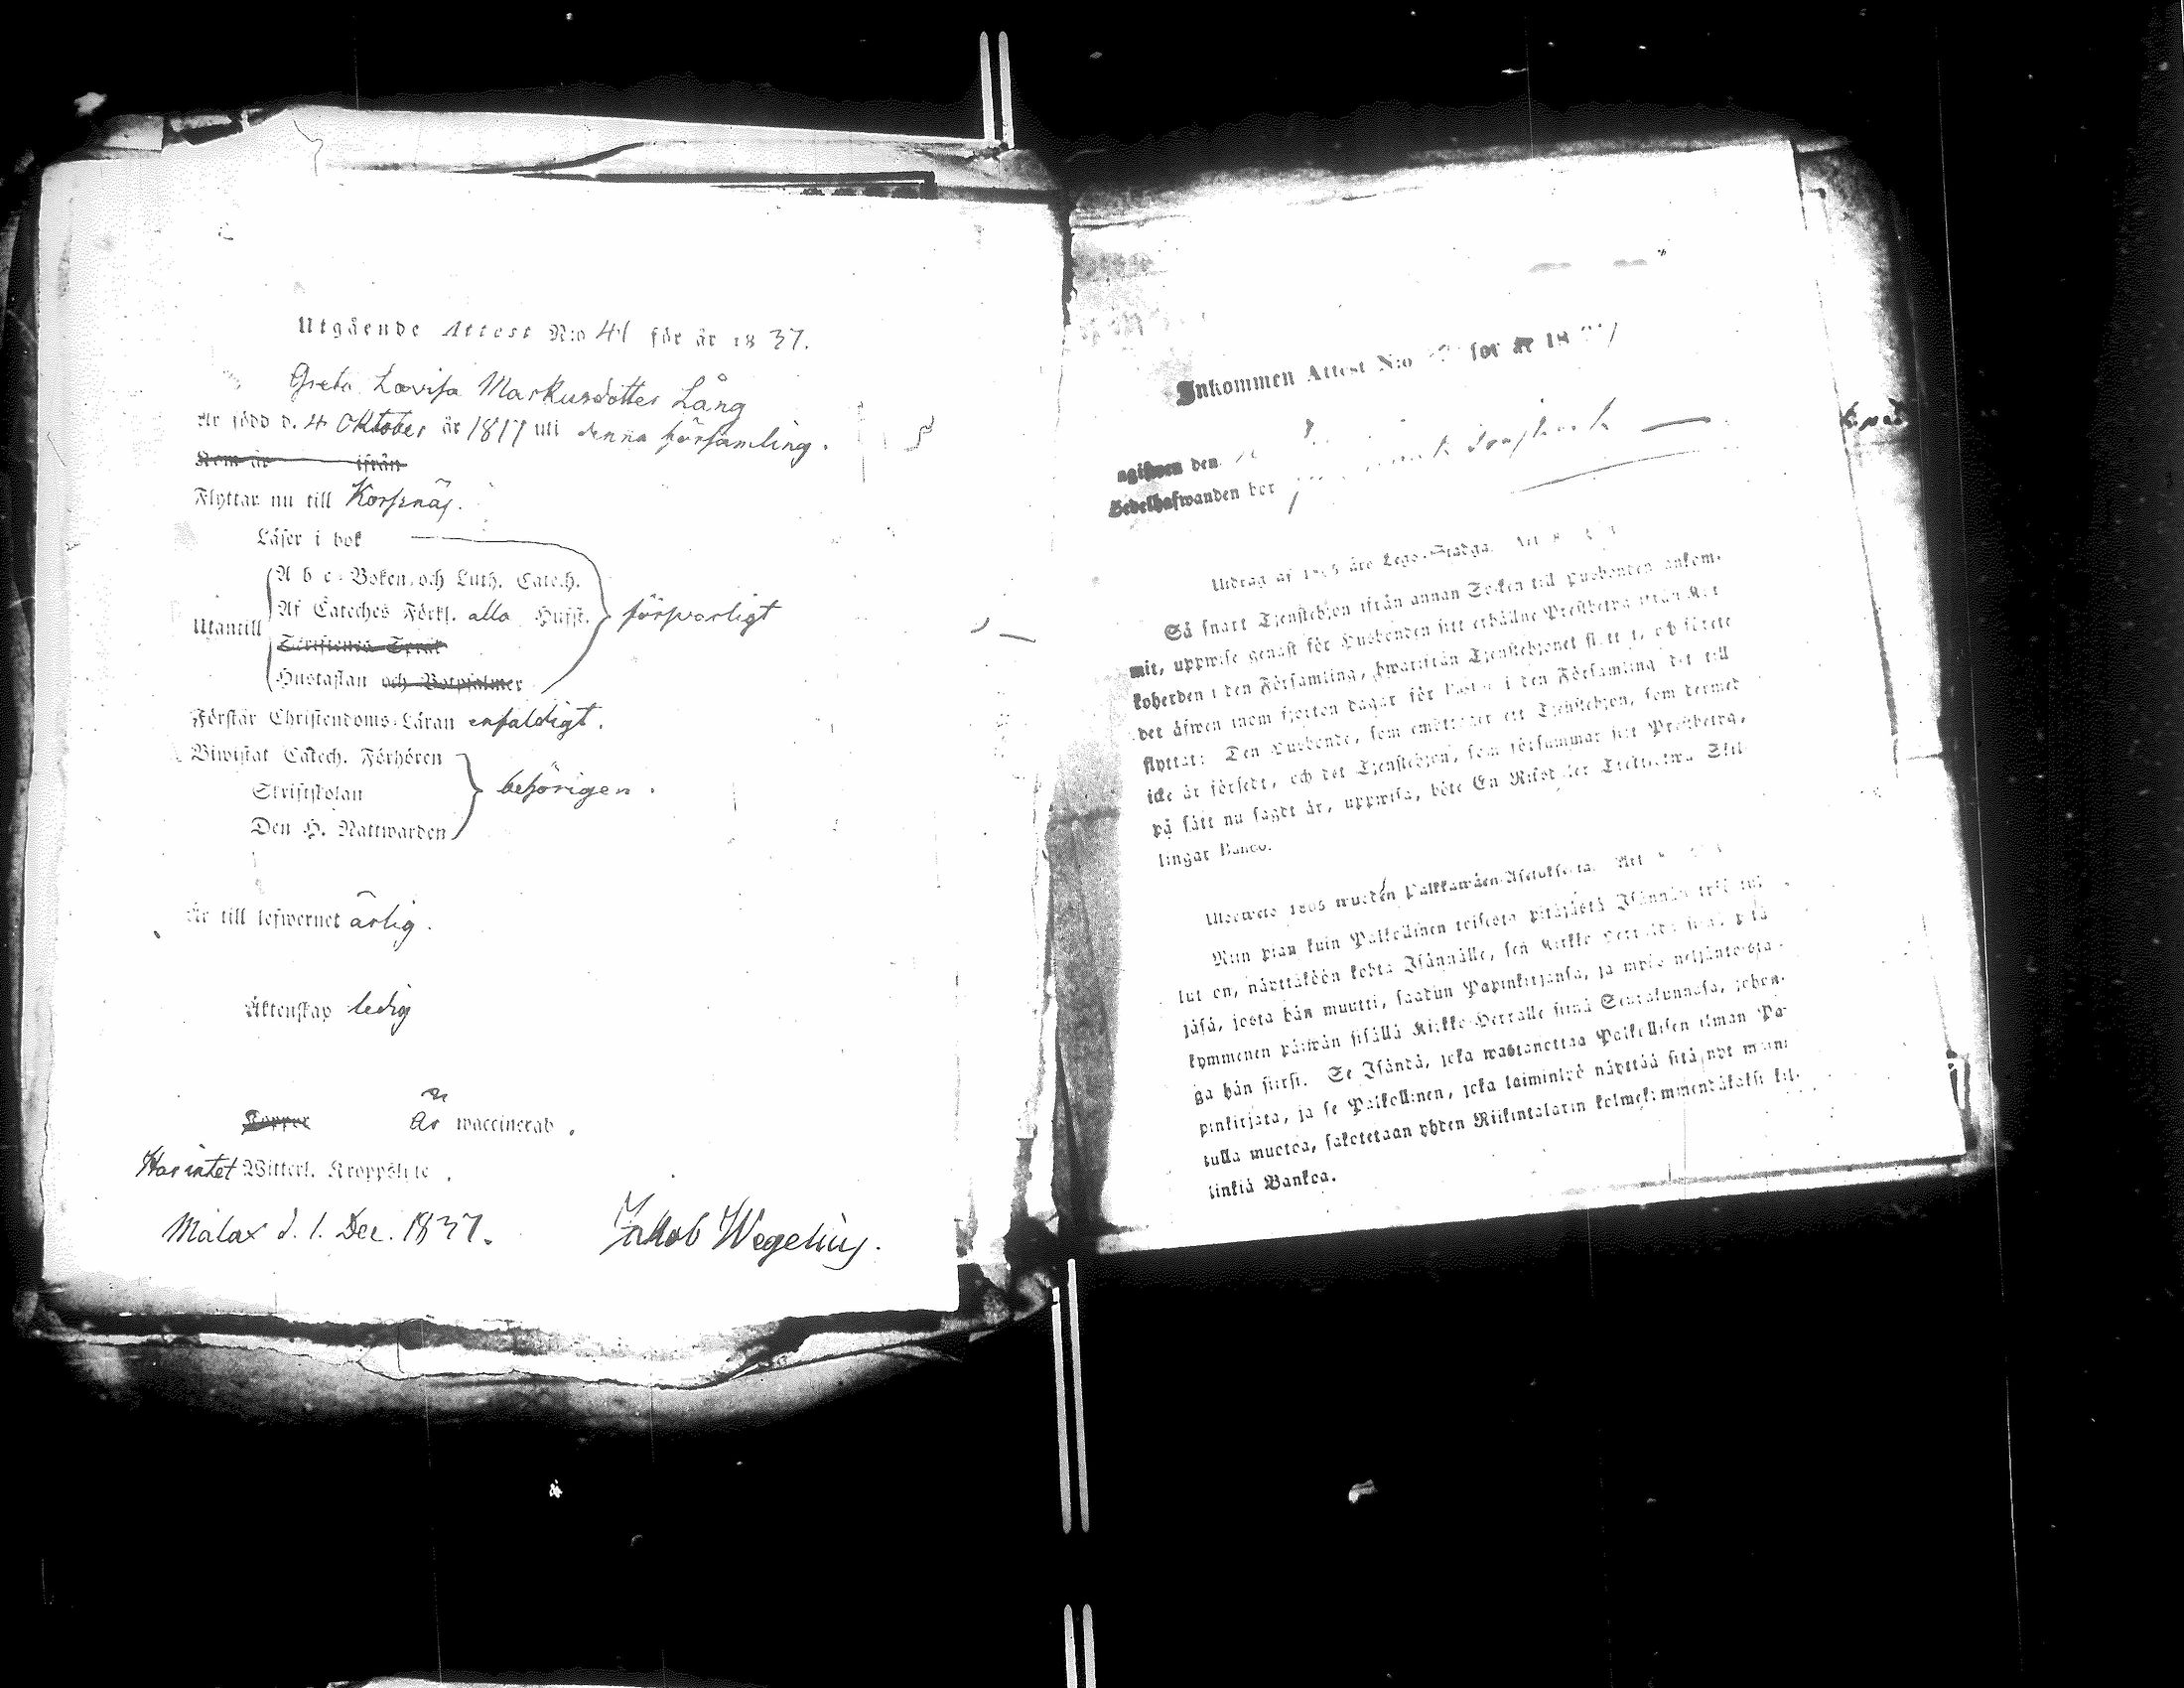 Utgående Attest N:o 41 för år 1837.
Greta Lovisa Markusdotter Lång
Är född d. 4 Oktober år 1817 uti denna församling.
Kom år ifrån
Flyttar nu till Korsnäs.
Läser i bok
A b c-Boken och Luth. Catech.
Af Cateches Förkl. alla Hufst.
försvarligt
Utantill
Hustaflan och Botpsalmer
Förstår Christendoms-Läran enfaldigt.
Biwistat Catech. Förhören
Skriftskolan
behörigen.
Den H. Nattwarden
Är till lefwernet ärlig.
Äktenskap ledig
Koppor
Är waccinerad.
Har intet Witterl. Kroppslyte.
Malax d. 1. Dec. 1837.
Jakob Wegelius.
Inkommen Attest N:o för år 18
ngifwen den
Sedelhafwanden bor
Utdrag af 1805 års Lego-Stadga. Art. 8
Så snart Tjenstehjon ifrån annan Socken till Husbonden ankom-
mit, uppwise genast för Husbonden sitt erhållne Prestbetyg ifrån Kyr-
koherden i den Församling, hwarifrån Tjenstehjonet flyttat, och förete
det äfwen inom fjorton dagar för Pastor i den Församling det till
flyttat: Den Husbonde, som emottager ett Tjenstehjon, som dermed
icke är försedt, och det Tjenstehjon, som försummar sitt Prestbetyg,
på sätt nu sagdt är, uppwisa, böte En Riksdaler Trettiotwå Skil-
lingar Banco.
Ulosweto 1805 wuoden Palkkawäen-Asetuksesta. Art.
Niin pian kuin Palkollinen toisesta pitäjästä Isännän tykö tul-
lut on, näyttäköön kohta Isännälle, sen Kirkko-Herralda siinä pitä-
jäsä, josta hän muutti, saadun Papinkirjansa, ja myös neljäntoista-
kymmenen päiwän sisällä Kirkko-Herralle siinä Seurakunnasa, johon-
ga hän siirsi. Se Isändä, joka wastanottaa Palkollisen ilman Pa-
pinkirjata, ja se Palkollinen, joka laiminlyö näyttää sitä nyt maini-
tulla muotoa, sakotetaan yhden Riikintalarin kolmekymmendäkaksi kil-
linkiä Bankoa.